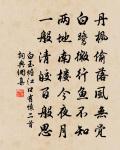 丹楓偷落風無覺
白鷺微行魚不知
兩地南樓今夜月
一般清皎百般思
白玉蟾江口有懷二首
詞典網集